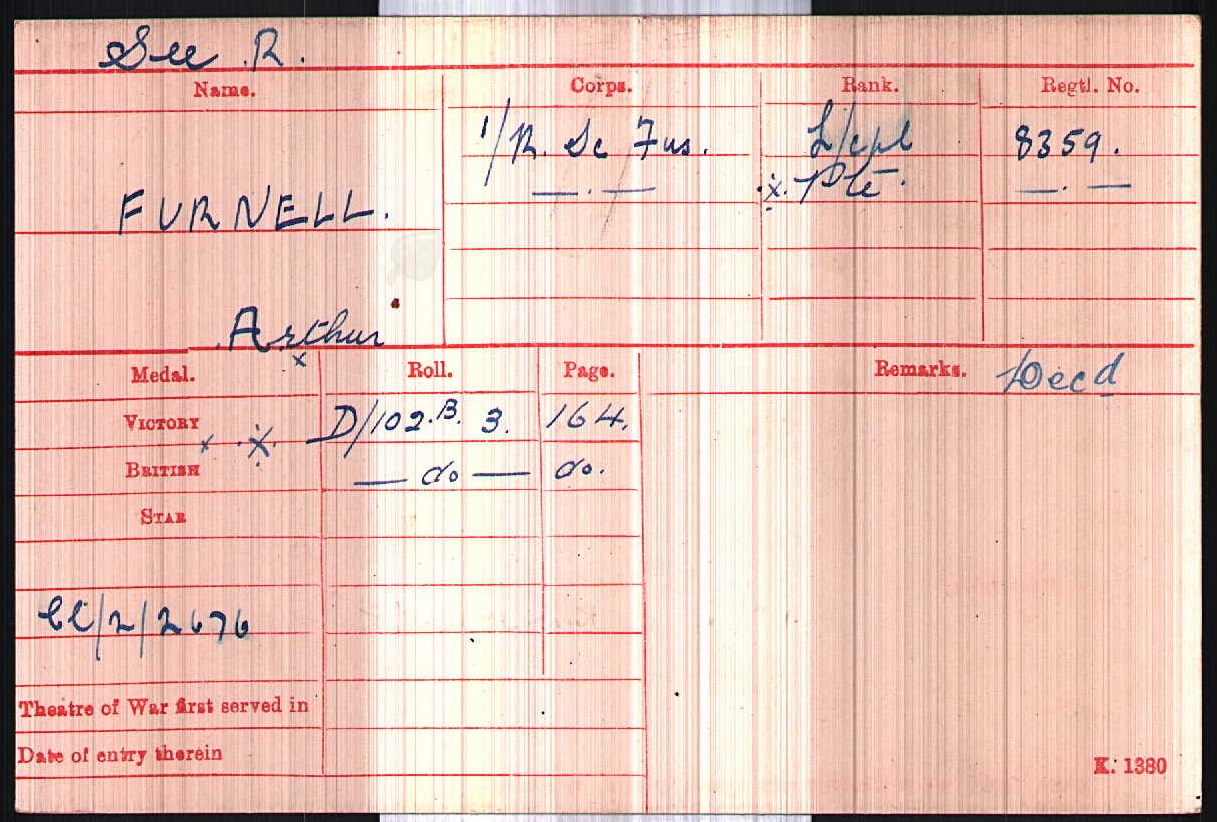 See R.
Name. Corps. Rank. Regtl. No.
1/R. Sc Fus. L/cpl 8359.
FURNELL. — . — .x. Pte. — . —
Arthur
x
Medal. Roll. Page. Remarks. Decd
VICTORY x .x. D/102.B. 3. 164.
BRITISH — do — do.
STAR
CL/2/2676
Theatre of War first served in
Date of entry therein
K. 1380